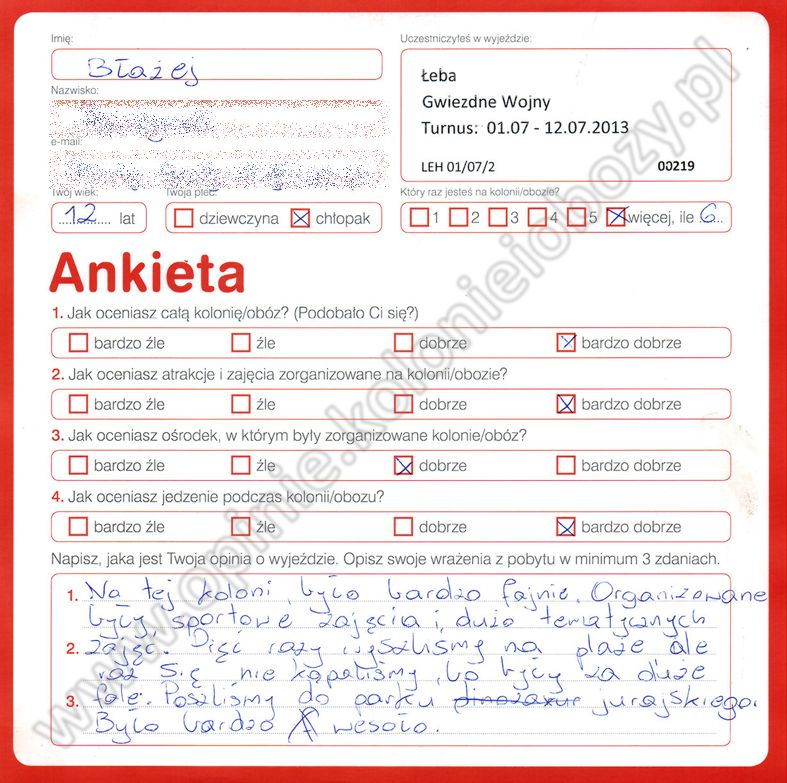 Imię:
Błażej
Nazwisko:
e-mail:
Uczestniczyłeś w wyjeździe:
Łeba
Gwiezdne Wojny
Turnus: 01.07 - 12.07.2013
LEH 01/07/2 00219
Twój wiek:
12 lat
Twoja płeć:
dziewczyna chłopak
Który raz jesteś na kolonii/obozie?
1 2 3 4 5 więcej, ile 6
Ankieta
1. Jak oceniasz całą kolonię/obóz? (Podobało Ci się?)
bardzo źle źle dobrze bardzo dobrze
2. Jak oceniasz atrakcje i zajęcia zorganizowane na kolonii/obozie?
bardzo źle źle dobrze bardzo dobrze
3. Jak oceniasz ośrodek, w którym były zorganizowane kolonie/obóz?
bardzo źle źle dobrze bardzo dobrze
4. Jak oceniasz jedzenie podczas kolonii/obozu?
bardzo źle źle dobrze bardzo dobrze
Napisz, jaka jest Twoja opinia o wyjeździe. Opisz swoje wrażenia z pobytu w minimum 3 zdaniach.
1. Na tej koloni było bardzo fajnie. Organizowane
były sportowe zajęcia i dużo tematycznych
2. zajęć. Pięć razy wyszliśmy na plaże ale
raz się nie kąpaliśmy, bo były za duże
3. fale. Poszliśmy do parku jurajskiego.
Było bardzo wesoło.
www.opinie.kolonieiobozy.pl